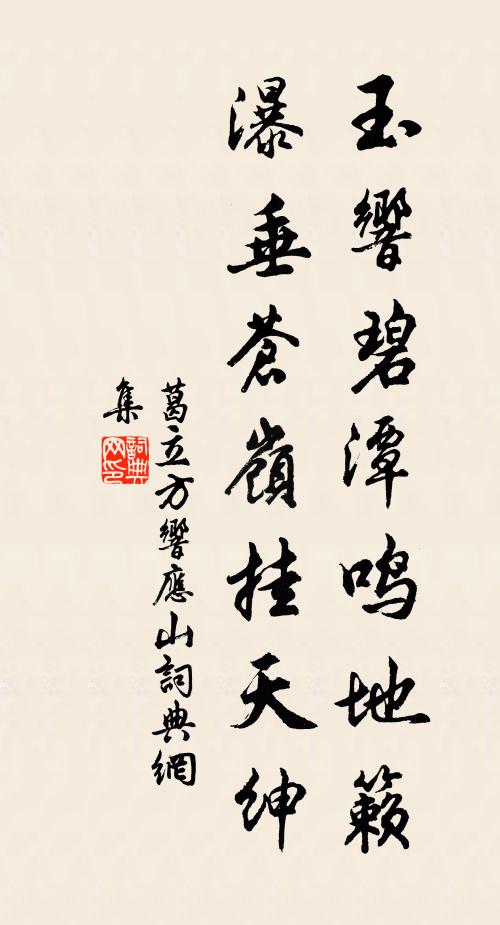 玉響碧潭鳴地籟
瀑垂蒼嶺挂天紳
葛立方響應山詞典網
集
詞典
网印